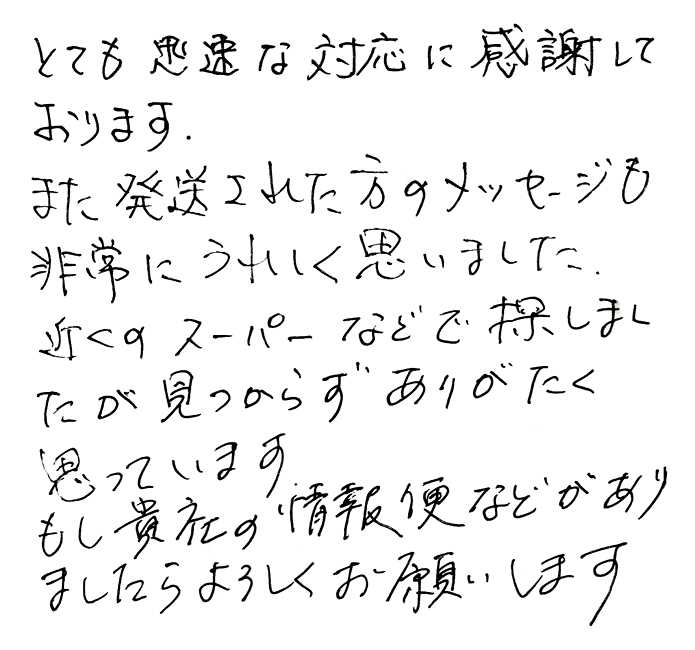 とても迅速な対応に感謝して
おります.
また発送された方のメッセージも
非常にうれしく思いました.
近くのスーパーなどで探しまし
たが見つからずありがたく
思っています
もし貴社の情報便などがあり
ましたらよろしくお願いします